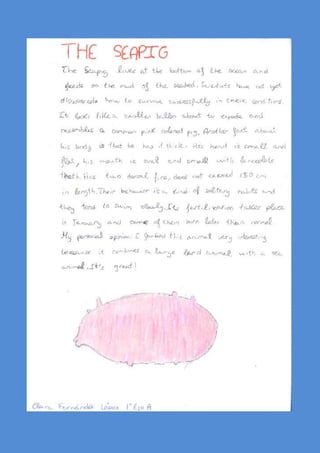 THE SEAPIG
The Seapig lives at the bottom of the ocean and
feeds on the mud of the seabed. Scientists have not yet
discovered how to survive successfully in these conditions.
It looks like a swollen ballon about to expode and
resembles a common pink colored pig. Another fact about
his body is that he has thick. His head is small and
flat, his mouth is oval and small with lanceolate
theeth. Has two dorsal fins, does not exceed 150 cm
in length. Their behavior is a kind of solitary habits and
they tend to swim slowly. It fertilization takes place
in January and some of them born later than normal.
My personal opinion I find this animal very interesting
because it combines a large land animal with a sea
animal. It's great!
Clara Fernández López 1º ESO A